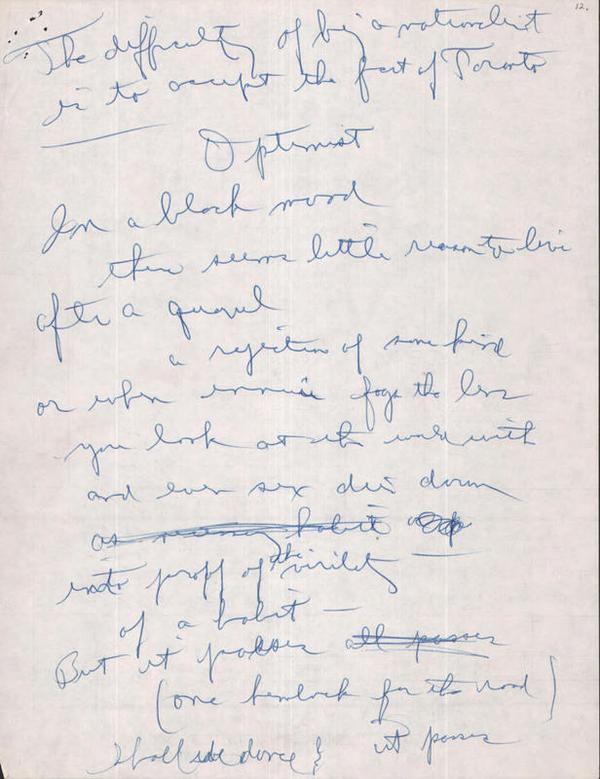 12.
The difficulty of being a nationalist
is to accept the fact of Toronto
Optimist
In a black mood
there seems little reason to live
after a quarrel
a rejection of some kind
or when ennui fogs the lens
you look at the world with
and even sex dies down
as habit
into proof of the virility
of a habit —
But it passes all passes
(one hemlock for the road)
it passes